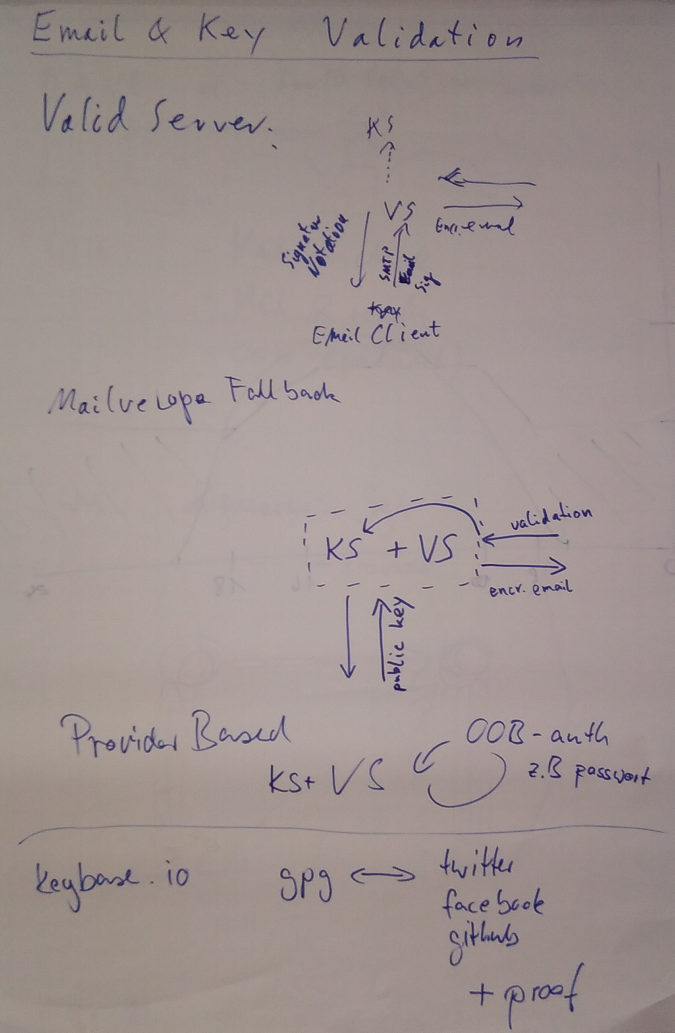 Email & Key Validation
Valid Server:
KS
VS
Encr. email
Signatur
Notation
SMTP
Email
Sig
Email Client
Mailvelope Fallback
KS + VS
validation
encr. email
public key
Provider Based
KS+ VS
OOB-auth
z.B passwort
keybase.io
gpg
twitter
facebook
github
+ proof